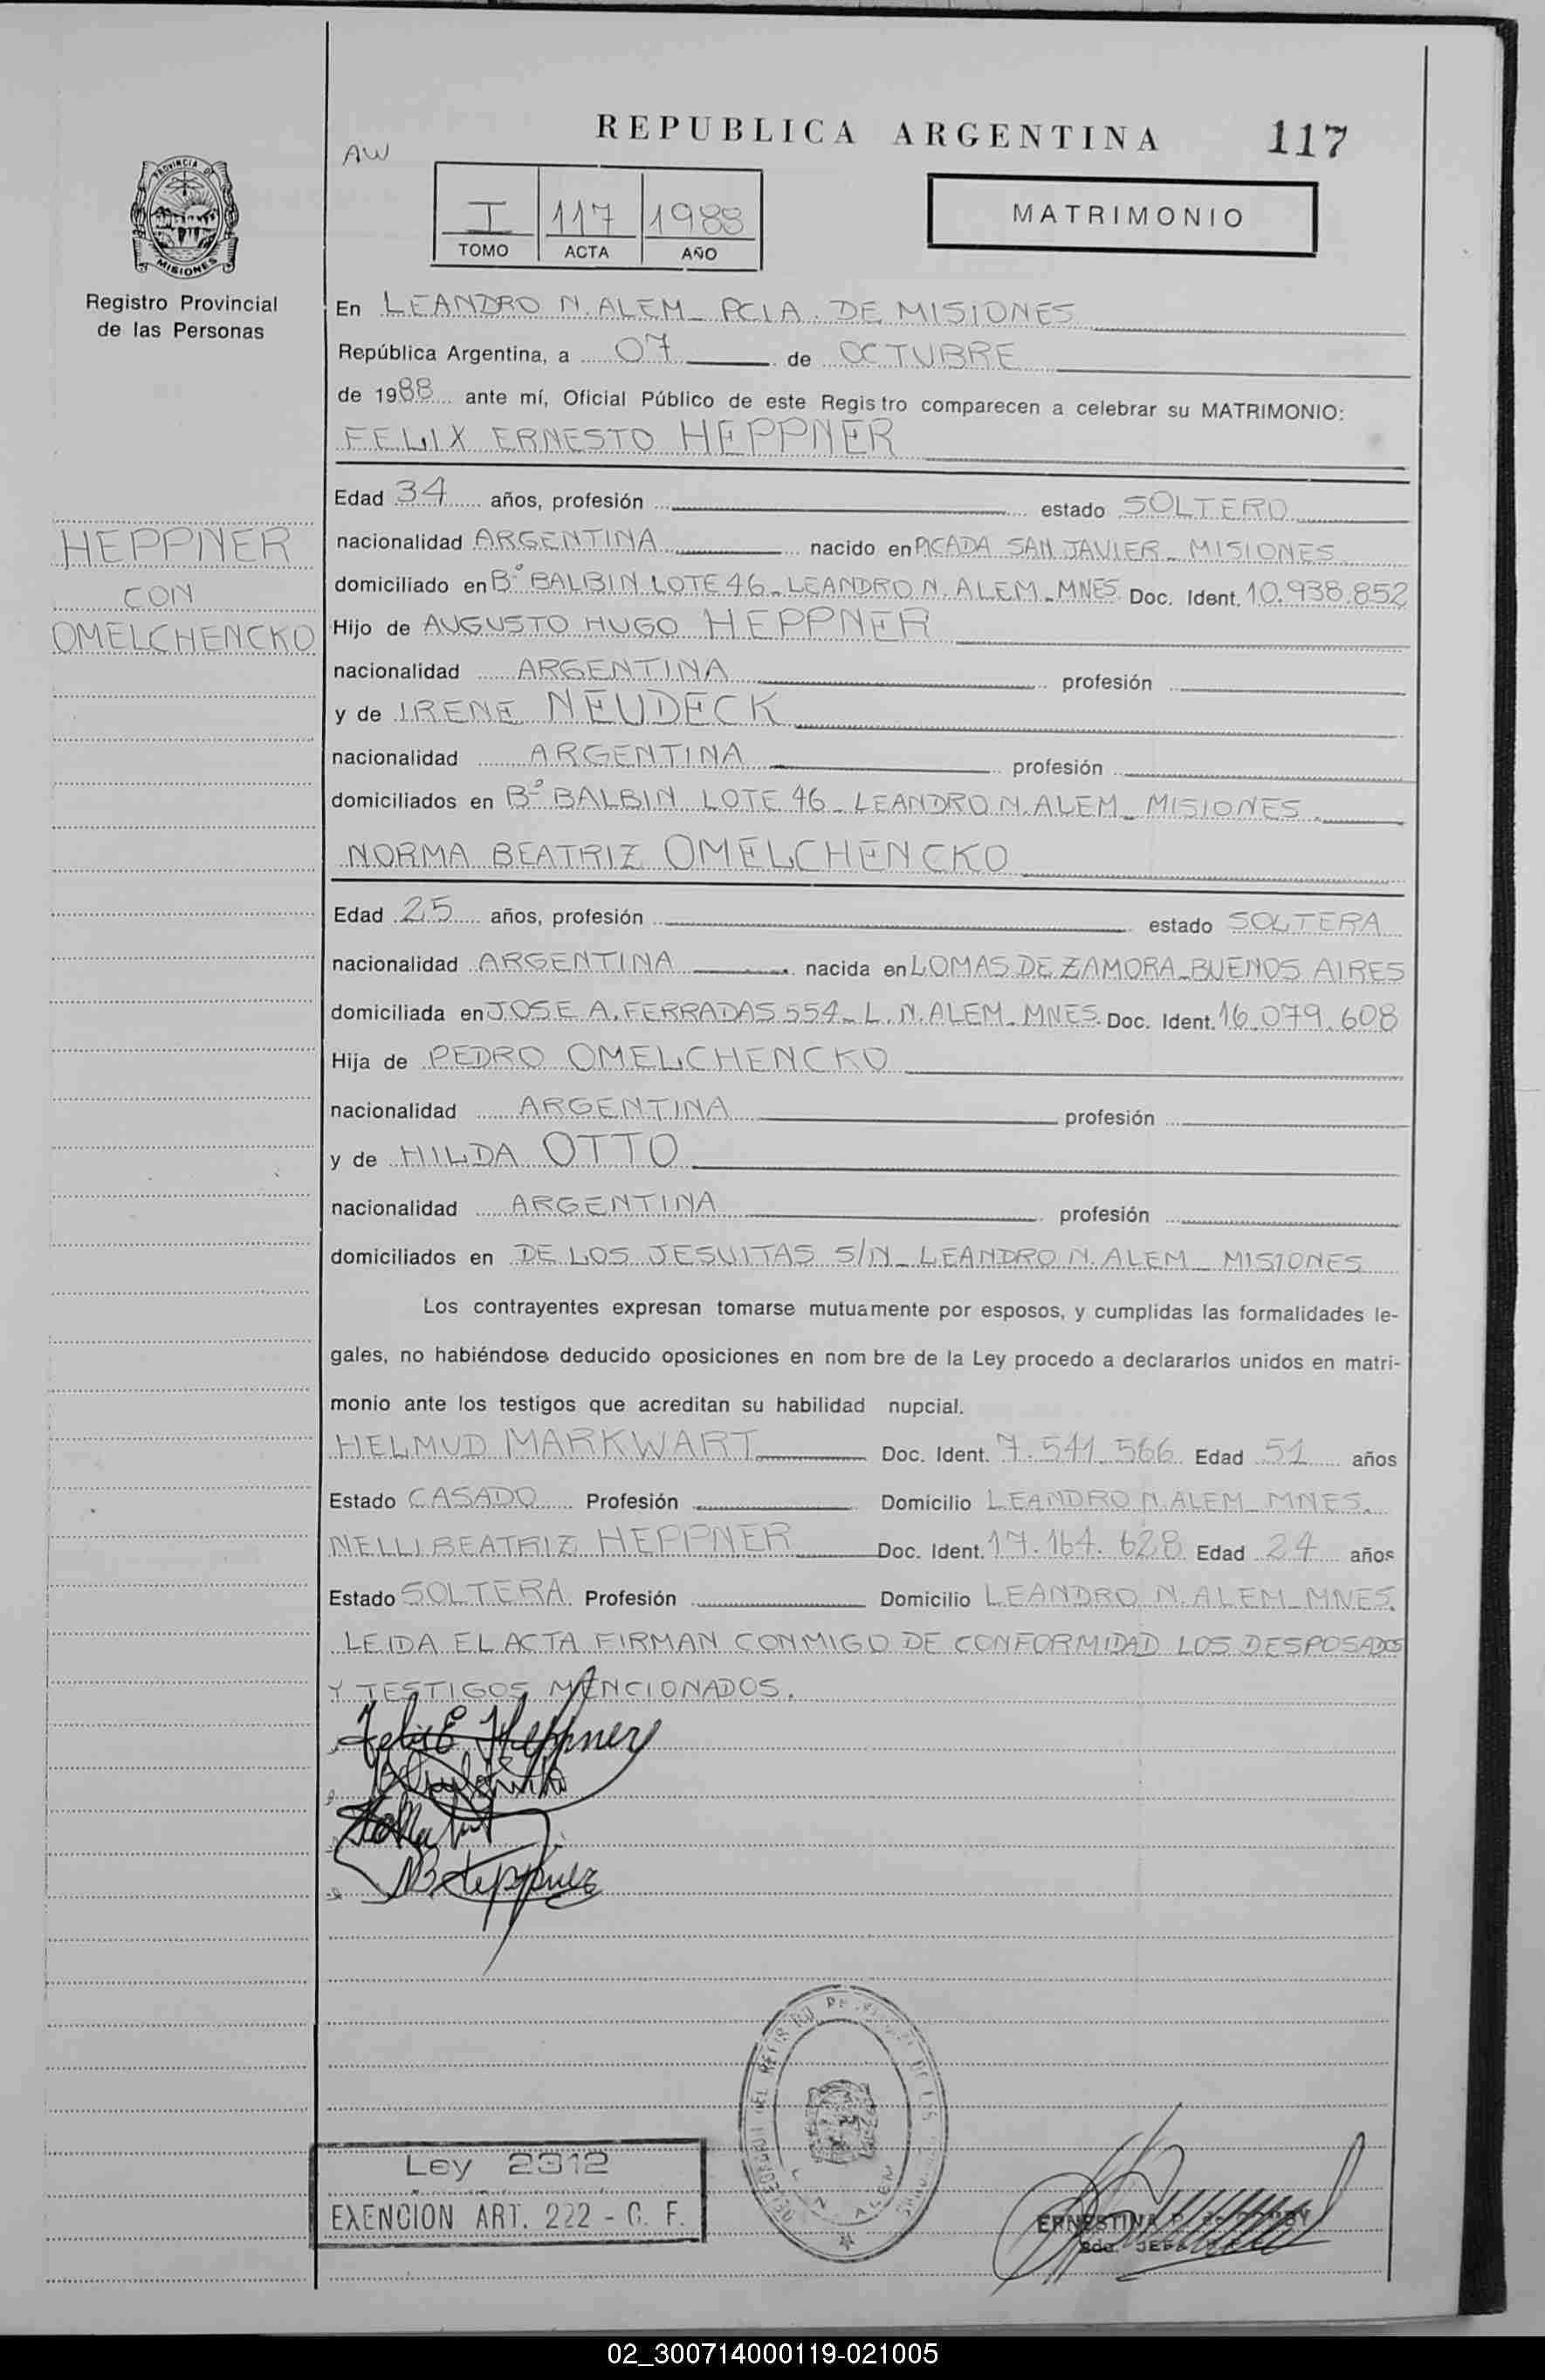 REPUBLICA ARGENTINA
117
AW
I 117 1988
TOMO ACTA AÑO
MATRIMONIO
PROVINCIA DE
MISIONES
Registro Provincial
de las Personas
HEPPNER
CON
OMELCHENCKO
En LEANDRO N. ALEM - PCIA. DE MISIONES
República Argentina, a 07 de OCTUBRE
de 1988 ante mí, Oficial Público de este Registro comparecen a celebrar su MATRIMONIO:
FELIX ERNESTO HEPPNER
Edad 34 años, profesión estado SOLTERO
nacionalidad ARGENTINA nacido en PICADA SAN JAVIER - MISIONES
domiciliado en Bº BALBIN LOTE 46 - LEANDRO N. ALEM - MNES Doc. Ident. 10.938.852
Hijo de AUGUSTO HUGO HEPPNER
nacionalidad ARGENTINA profesión
y de IRENE NEUDECK
nacionalidad ARGENTINA profesión
domiciliados en Bº BALBIN LOTE 46 - LEANDRO N. ALEM - MISIONES.
NORMA BEATRIZ OMELCHENCKO
Edad 25 años, profesión estado SOLTERA
nacionalidad ARGENTINA nacida en LOMAS DE ZAMORA - BUENOS AIRES
domiciliada en JOSE A. FERRADAS 554 - L. N. ALEM - MNES. Doc. Ident. 16.079.608
Hija de PEDRO OMELCHENCKO
nacionalidad ARGENTINA profesión
y de HILDA OTTO
nacionalidad ARGENTINA profesión
domiciliados en DE LOS JESUITAS S/N - LEANDRO N. ALEM - MISIONES
Los contrayentes expresan tomarse mutuamente por esposos, y cumplidas las formalidades le-
gales, no habiéndose deducido oposiciones en nom bre de la Ley procedo a declararlos unidos en matri-
monio ante los testigos que acreditan su habilidad nupcial.
HELMUD MARKWART Doc. Ident. 7.541.566 Edad 51 años
Estado CASADO Profesión Domicilio LEANDRO N. ALEM - MNES.
NELLI BEATRIZ HEPPNER Doc. Ident. 17.164.628 Edad 24 años
Estado SOLTERA Profesión Domicilio LEANDRO N. ALEM - MNES.
LEIDA EL ACTA FIRMAN CONMIGO DE CONFORMIDAD LOS DESPOSADOS
Y TESTIGOS MENCIONADOS.
Felix E Heppner
NB Heppner
DELEGACION DEL REGISTRO
L. N. ALEM
Ley 2312
EXENCION ART. 222 - C. F.
ERNESTINA
JEFA
02_300714000119-021005